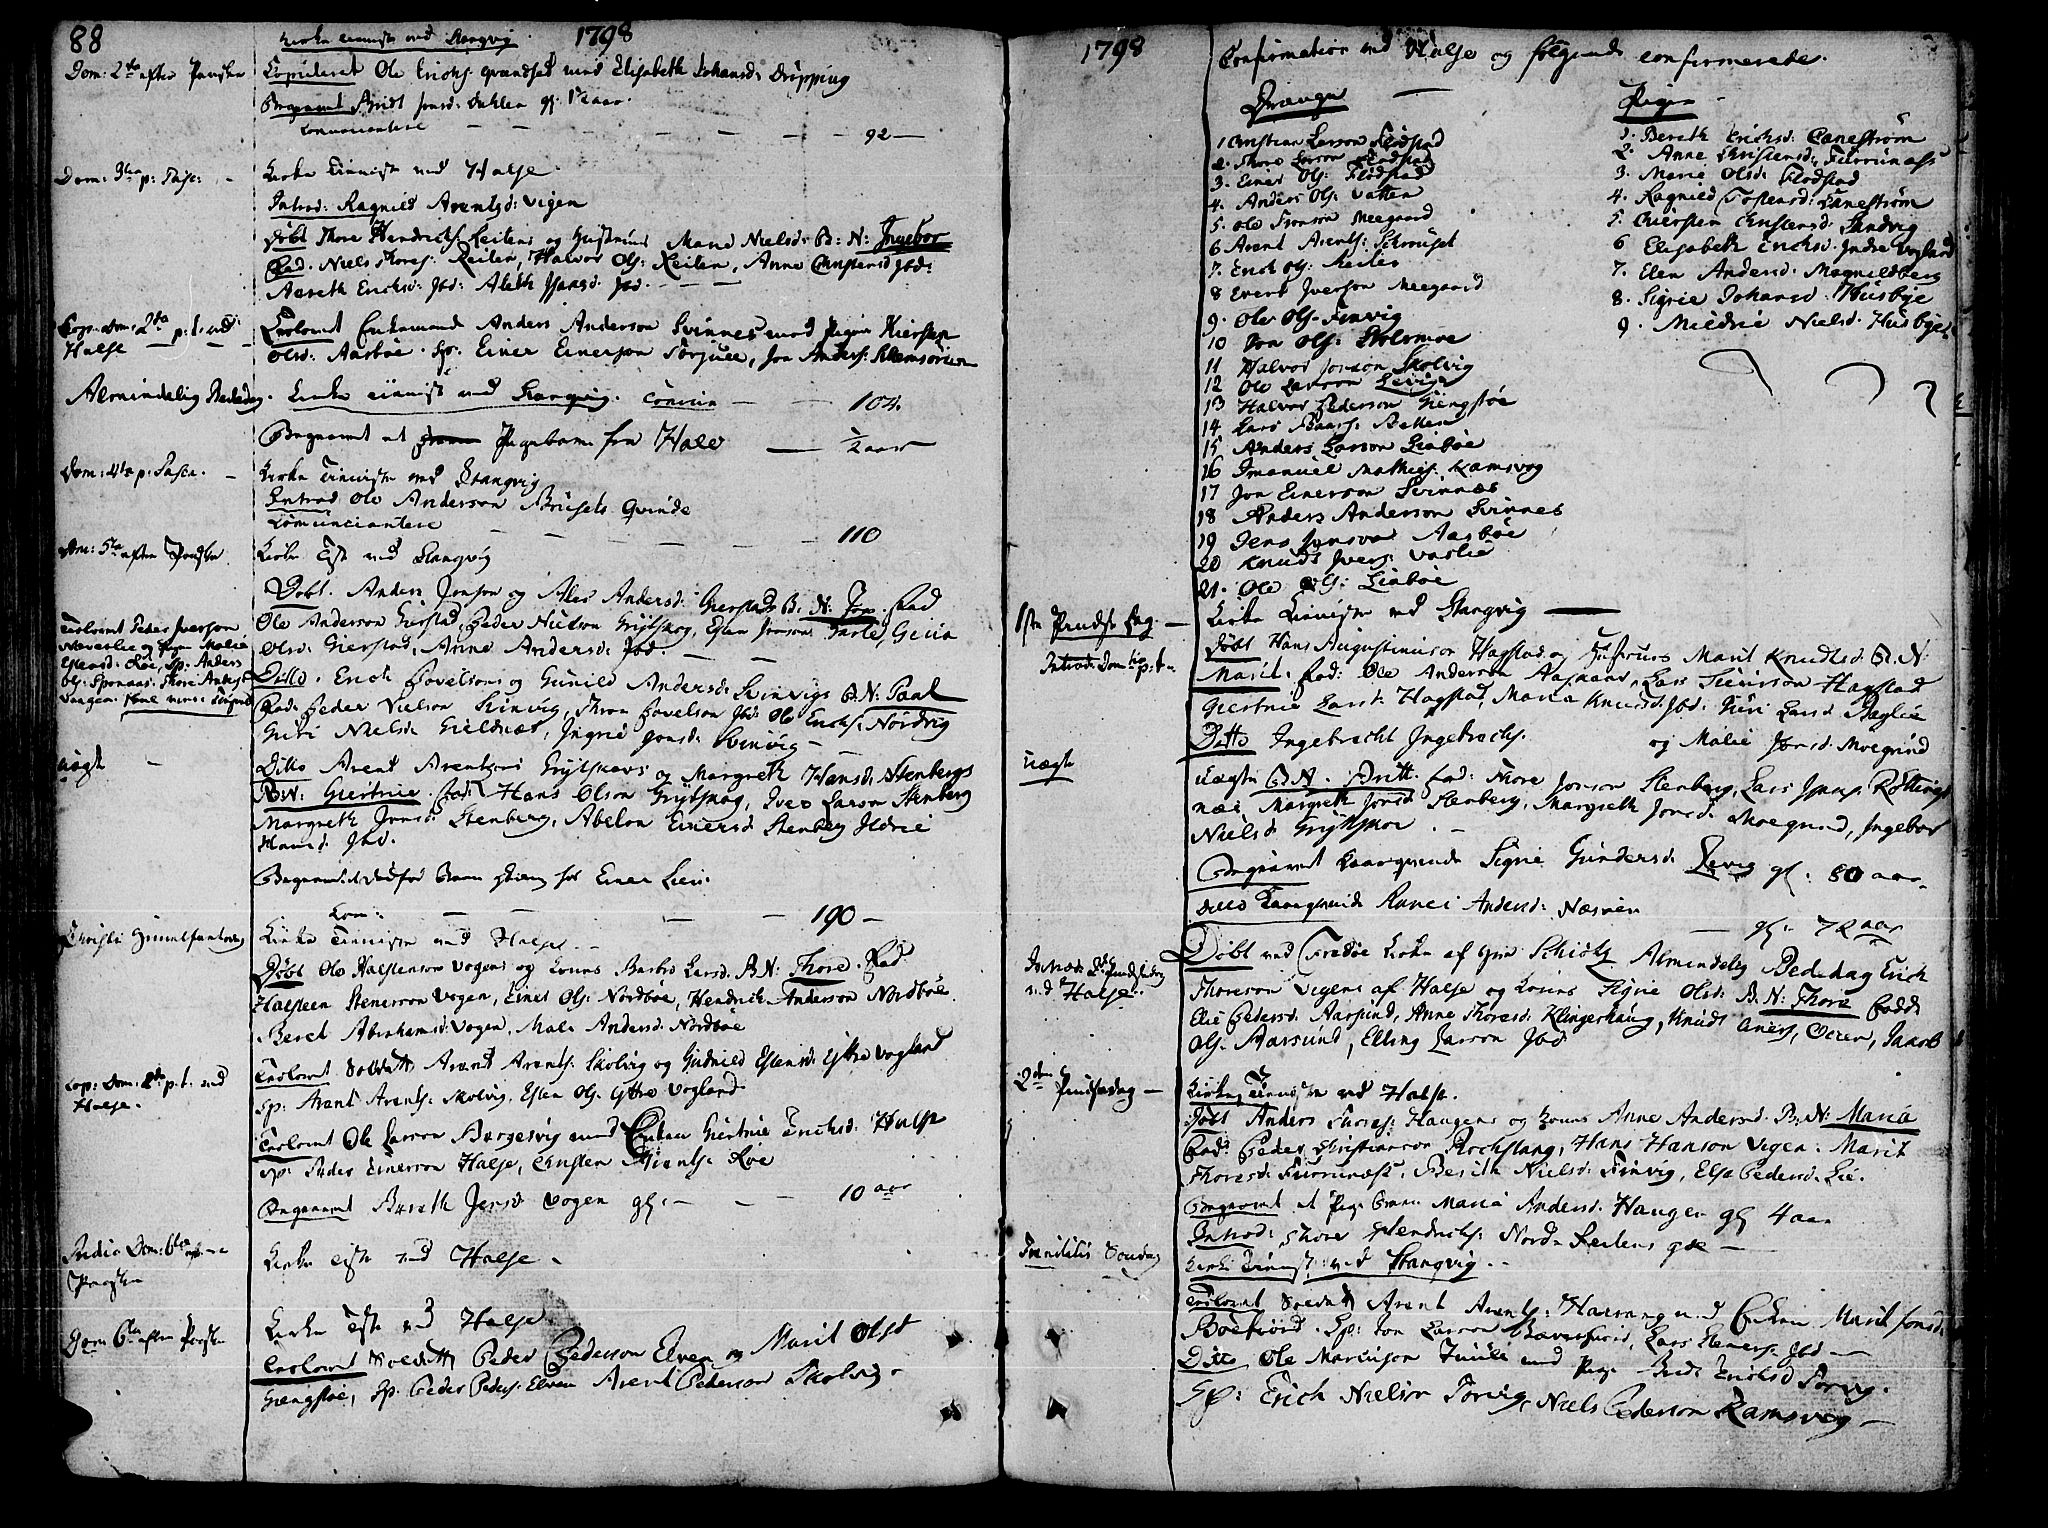 88
1798
Kirke tieniste ved Stangvig.
Dom: 2de efter Paaske
Copuleret Ole Erichs. Grandsæt med Elisabeth Johansd: Drøpping
Begravet Birit Jonsd: Dahlen gl. 1½ aar.
Communicantere — 92 —
Dom: 3tia p: Pasc:
Kirke Tieniste ved Halse.
Introd: Ragnild Arentsd: Vigen
Døbt Thore Hendrichs. Leitens og Hustrues Marie Nielsd: B: N: Ingebor
Fad. Niels Thores. Leiten, Halvor Ols: Leiten, Anne Christensd Ibd:
Bereth Erichsd: Ibd: Aleth Isaacsd. Ibd.
Cop: Dom: 2da p: t: ved Halse
Trolovet Enkemand Anders Anderson Svinnes med Pigen Kiersten
Olsd: Aasbøe. Sp: Einer Einerson Torjull, Jon Anders:
Almindelig Bededag.
Kirke tieniste ved Stangvig. Comun — 104.
Begravet et Pigebarn fra Hale — ½ aar
Dom: 4ta p: Pasca.
Kirke Tieniste ved Stangvig
Introd Ole Anderson Brusets Qvinde
Comunicantere — 110
Dom: 5te efter Paaske
Kirke Tste ved Stangvig
Døbt. Anders Jonson og Ales Andersd: Gierstads B. N: Jon. Fad
Ole Anderson Gierstad, Peder Nielson Grytskog, Esten Jonson, Guri
Olsd: Gierstad, Anne Andersd: Ibd.
Trolovet Peder Iverson
Naverlie og Pigen Malie
Estensd: Roe, Sp: Anders
Ols: Sponaas, Thore Anders
Ditto. Erich Povelsons og Gunild Andersd: Svinvigs B. N: Paal
Fad: Peder Nielson Svinvig, Thron Povelson Ibd: Ole Erichs: Nordvig
Guri Nielsd Gieldnæs, Ingrie Jonsd: Svinvig —
uægte
Ditto Arent Arentsons Grytskogs og Margreth Hansd: Stenbergs
B: N: Giertrue. Fad: Hans Olson Grytskog, Iver Larson Stenberg
Margreth Jonsd: Stenberg, Abelon Einersd: Stenberg Ildrie
Hansd. Ibd.
Begravet dødfød Barn Dreng for Einer Lien.
Com: — 190 —
Christi Himmelfartsdag
Kirke Tieniste ved Halse.
Døbt Ole Halstenson Vogens og konns Barbro Larsd. B: N: Thore. Fad
Halsteen Stenerson Vogen, Einer Ols: Nordbøe, Hendrich Anderson Nordbøe.
Beret Abrahamsd: Vogen, Male Andersd: Nordbøe
Cop: Dom: 2da p: t: ved Halse.
Trolovet Soldatt Arent Arents: Skolvig og Gudnild Estensd: Yttre Vogland
Sp: Arent Arents: Skolvig, Esten Ols. Yttre Vogland
Trolovet Ole Larson Børgesvig med Enken Giertrue Erichsd: Halse
Sp: Peder Einerson Halse, Christen Arents: Roe
Begravet Bereth Jensd Vogen gl: — 10 aar
Kirke tiste ved Halse.
Dom: 6te efter Paaske
Kirke Tiste ved Halse
Trolovet Soldatt Peder Pederson Elven og Marit Olsd
Giengstøe, Sp: Peder Peders. Elven Arent Pederson Skolvig.
1798
Confirmation ved Halse og følgende confirmerede.
Drenge
1 Christian Larson Flodstad
2. Thore Larson Flodstad
3. Einer Ols: Flodstad
4. Anders Ols: Vatten
5. Ole Tronson Meegaard
6 Arent Arents: Schrouset
7. Erich Ols: Reiten
8 Evert Iverson Meegaard
9. Ole Ols. Finvig
10 Jon Ols: Skolsmoe
11 Halvor Jonson Skolvig
12 Ole Larson Levigen
13 Halvor Pederson Giengstøe
14 Lars Baars: Betten
15 Anders Larson Liabøe
16 Imanuel Mathies. Ramsvog
17 Jon Einerson Svinnes
18 Anders Anderson Svinnes
19 Jens Jonson Aasbøe
20 Knuds Ivers: Vaslie
21. Ole Ols: Liabøe
Piger
1. Bereth Erichsd: Canestrøm
2. Anne Christensd: Furrunæss
3. Marie Olsd: Flodstad
4. Ragnild Tostensd: Canestrøm
5. Kiersten Christensd: Sandvig
6 Elisabeth Erichsd. Indre Vogland
7. Elen Andersd. Magnildberg
8. Sigrie Johansd. Husbye
9. Mildrie Nielsd. Husbye
1ste Pindse Dag. —
Kirke Tieniste ved Stangvig —
Introd: Dom: p: t:
Døbt Hans Augustinusson Hagstad og Hustrues Marit Knudtsd. B. N:
Marit. Fad: Ole Anderson Aasgaard, Lars Siverson Hagstad
Giertrue Larsd: Hagstad, Maria Knudsd. Ibd: Guri Larsd. Bæglie
uægte
Ditto Ingebrecht Ingebrechts. og Malie Jonsd. Moegrind
uægte B. N. Britt. Fad: Thore Jonson Stenberg, Lars Isaacs. Røttings
næs, Margreth Jonsd Stenberg, Margreth Jonsd. Moegrind, Ingebor
Nielsd Grytskog.
Begravet Kaarqvinde Sigrie Gundersd. Levig gl: 80 aar.
Ditto Kaarqvinde Ranei Andersd. Næsvien — gl. 72 aar
Introd: 2de Pindsedag ved Halse.
Døbt ved Tredøe Kirke af Hr. Schiøtz Almindelig Bededag Erich
Thoreson Vigens af Halse og Konns Sigrie Olsd: B. N: Thore Fadd.
Elie Pedersd. Aarsund, Anne Thoresd: Klingerhaug, Knudt Oneson, Oeren, Jacob
Ols. Aarsund, Elling Larson Ibd
2den Pindsedag —
Kirke Tieniste ved Halse.
Døbt Anders Thores: Haugens og konns Anne Andersd. B: N: Maria
Fad: Peder Christianson Rochstang, Hans Hanson Vigen. Marit
Thoresd: Furrunæss, Bereth Nielsd: Finvig, Else Pedersd. Lie.
Begravet et Pige Barn Maria Andersd. Haugen gl 4 aar
Introd: Thore Hendrichs: Nordre Leitens qde —
Trinitatis Søndag
Kirke Tieniste ved Stangvig.
Trolovet Soldat Arent Arents: Haerang med Enken Marit Jonsd.
Boeverfiord. Sp: Jon Larson Bæverfiord, Lars Steners: Ibd —
Ditto Ole Martinson med Pige Birit Erichsd Torvig.
Sp: Erich Nielson Torvig, Niels Pederson Ramsvog —